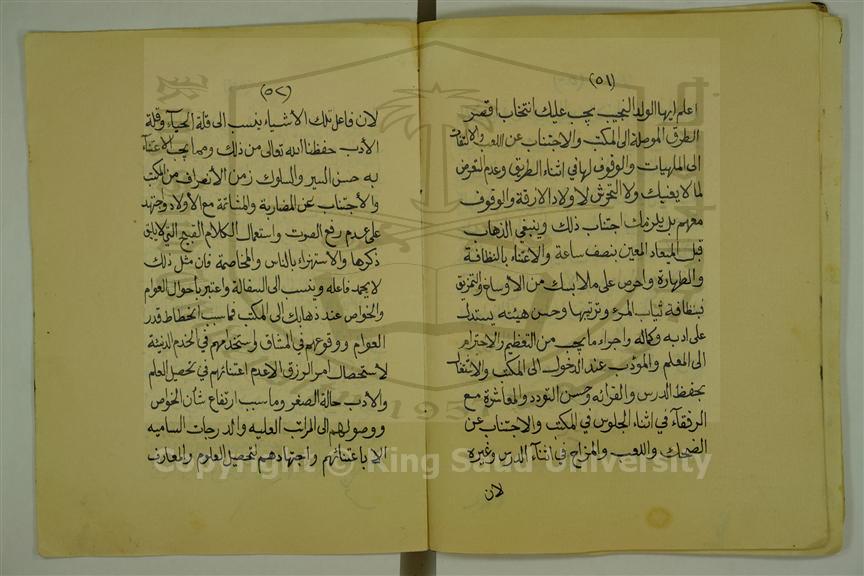 (٥١)
اعلم ايها الولد النجيب يجب عليك انتخاب اقصر
الطرق الموصلة الى المكتب والاجتناب عن اللعب والالتفات
الى الملهيات والوقوف لها فى اثناء الطريق وعدم التعرض
لما لا يعنيك ولا التحرش لاولاد الازقة والوقوف
معهم بل يلزمك اجتناب ذلك وينبغي الذهاب
قبل الميعاد المعين بنصف ساعة والاعتناء بالنظافة
والطهارة واحرص على ملابسك من الاوساخ والتمزيق
فبنظافة ثياب المرء وترتيبها وحسن هيئته يستدل
على ادبه وكماله واجراء ما يجب من التعظيم والاحترام
الى المعلم والمؤدب عند الدخول الى المكتب والاشتغال
بحفظ الدرس والقرائه وحسن التودد والمعاشرة مع
الرفقآء في اثناء الجلوس في المكتب والاجتناب عن
الضحك واللعب والمزاح في اثنآء الدرس وغيره
لان
(٥٢)
لان فاعل تلك الاشياء ينسب الى قلة الحيآء وقلة
الأدب حفظنا الله تعالى من ذلك ومما يجب الاعتنآء
به حسن السير والسلوك زمن الأنصراف من المكتب
والأجتناب عن المضاربة والمشاتمة مع الأولاد وجتهد
على عدم رفع الصوت واستعمال الكلام القبيح التى لا يليق
ذكرها والاستهزاء بالناس والمخاصمة فان مثل ذلك
لا يحمد فاعله وينسب الى السفالة واعتبر بأحوال العوام
والخواص عند ذهابك الى المكتب فما سبب انحطاط قدر
العوام ووقوعهم في المشاق واستخدامهم في الخدم الدنيئة
لاستحصال امر الرزق الا عدم اعتنائهم في تحصيل العلم
والادب حالة الصغر وما سبب ارتفاع شأن الخواص
ووصولهم الى المراتب العليه والدرجات الساميه
الا باعتنائهم واجتهادهم لتحصيل العلوم والمعارف
Copyright © King Saud University
1957